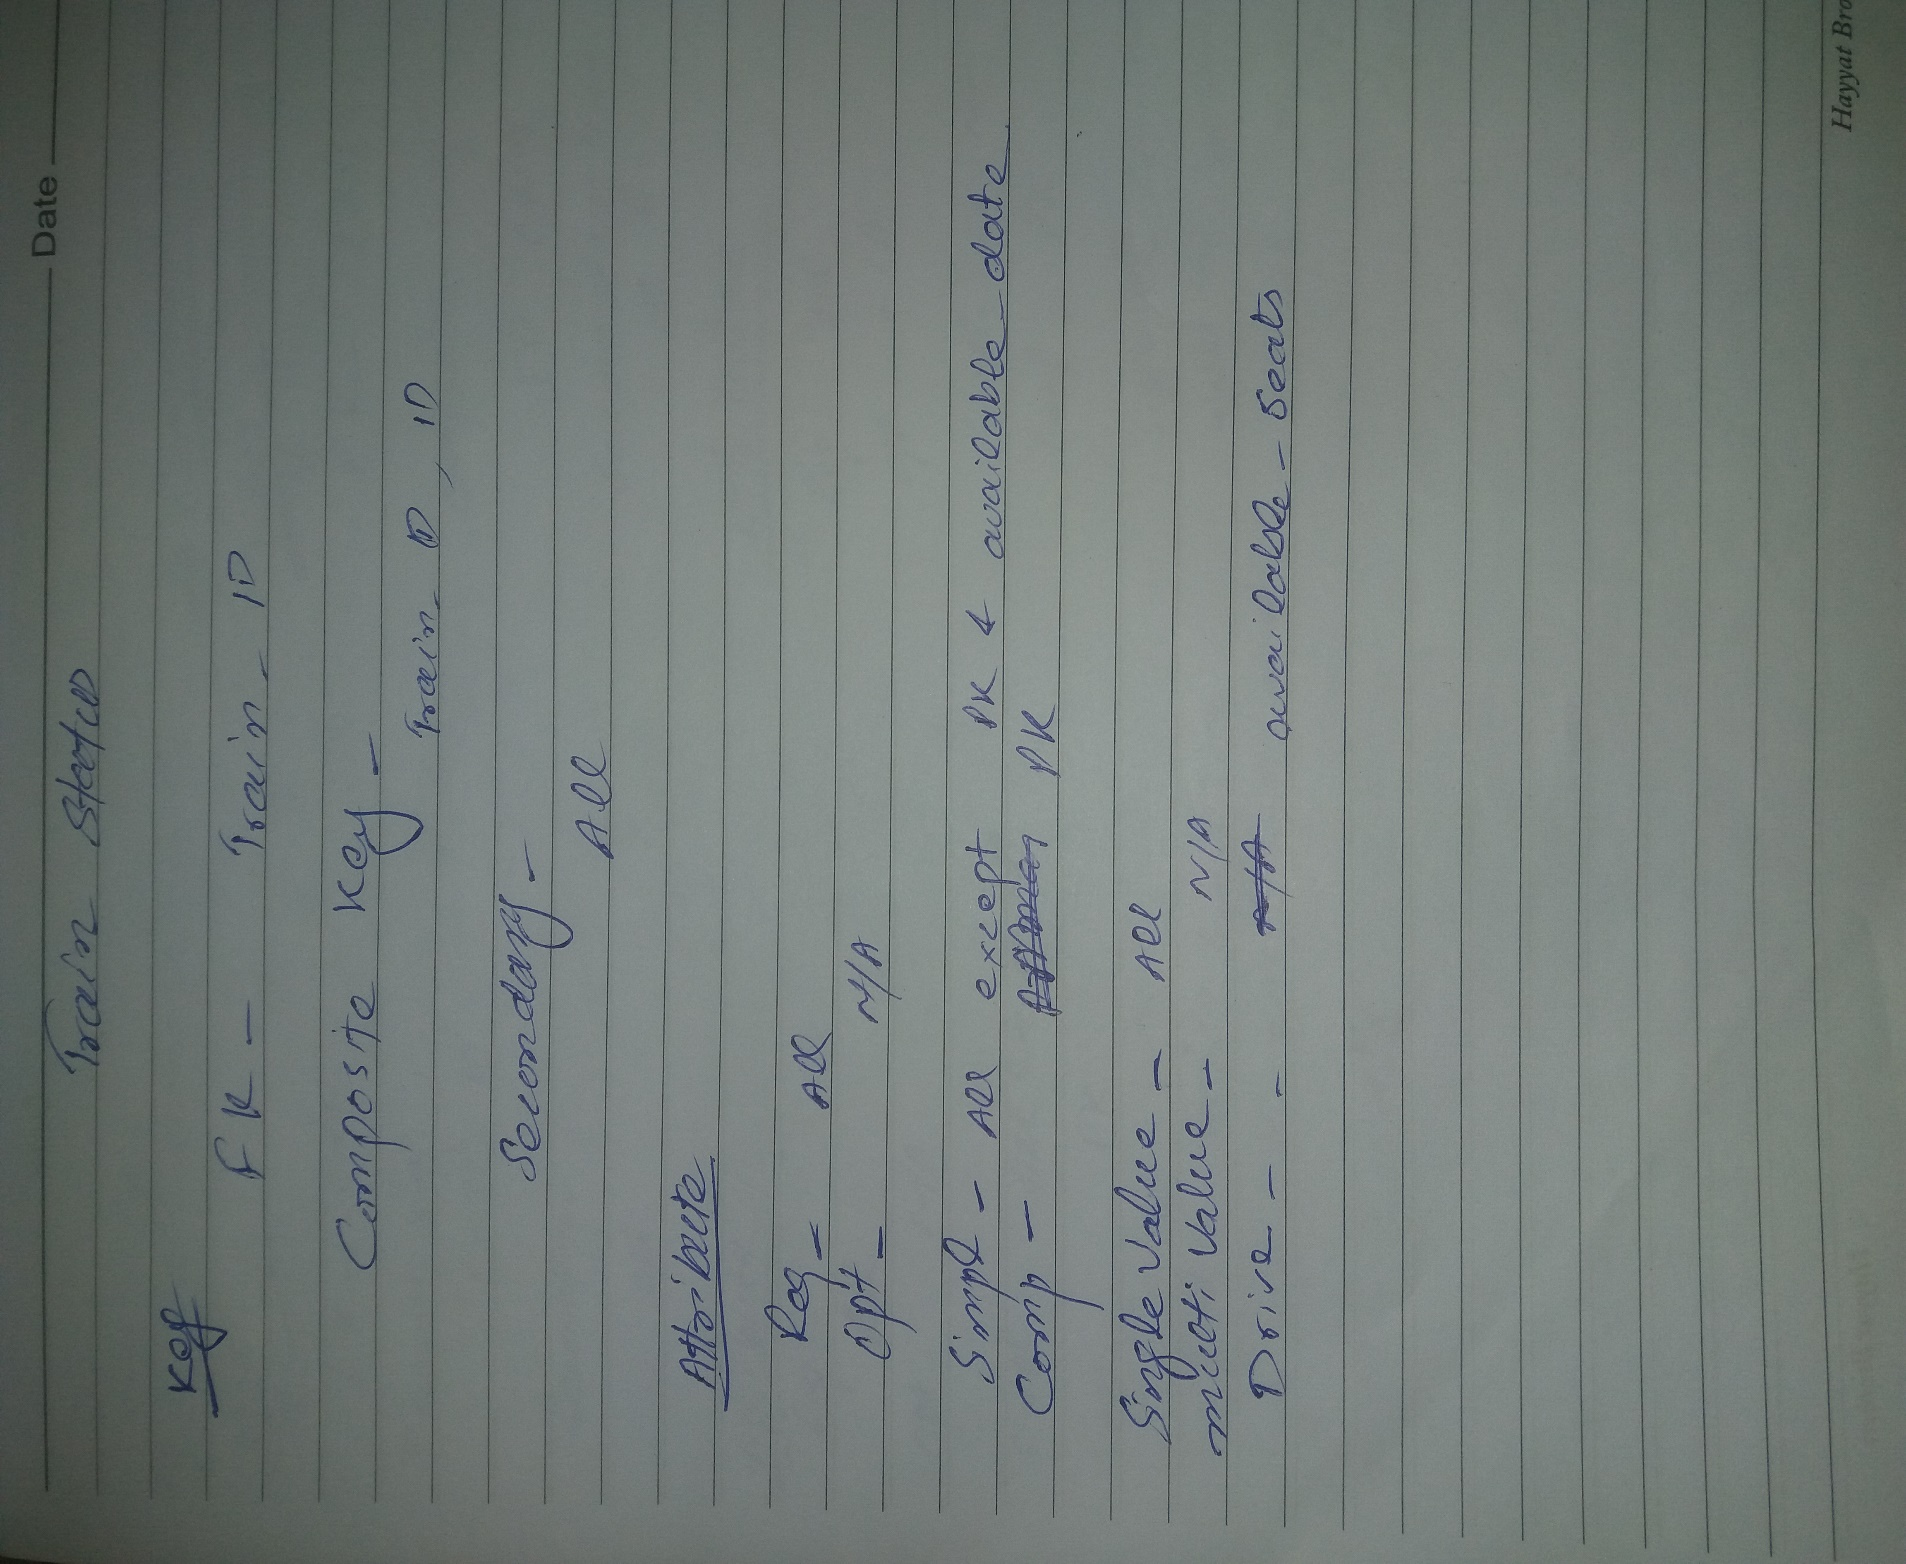 Date
Train Status
Key
FK - Train_ID
Composite Key -
Train_ID, ID
Secondary -
All
Attribute
Req - All
Opt - N/A
Simpl - All except PK & available_date
Comp - PK
Single Value - All
multi Value - N/A
Drive - - N/A available_seats
Hayyat Bro